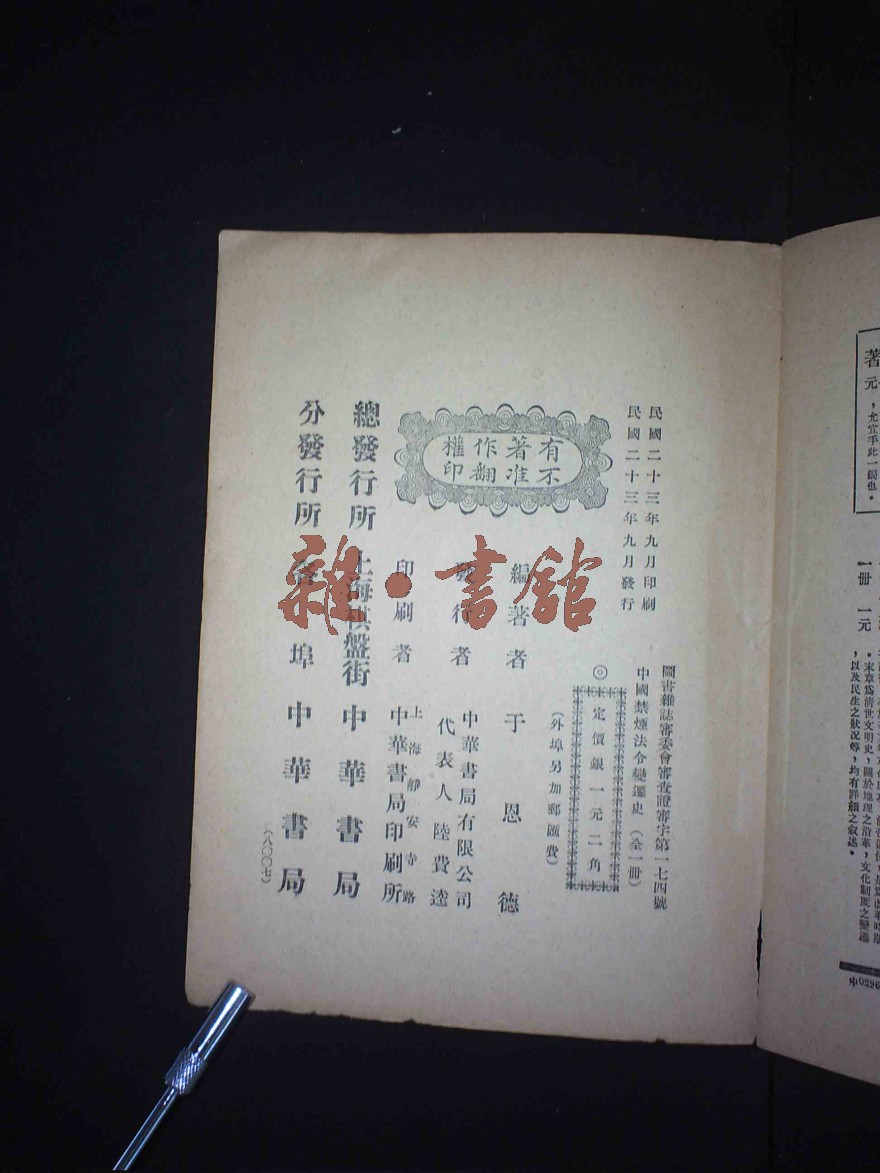 民國二十三年九月印刷
民國二十三年九月發行
圖書雜誌審委會審查證審字第一七四號
中國禁煙法令變遷史（全一冊）
◎定價銀一元二角
（外埠另加郵匯費）
有著作權
不准翻印
編著者 于恩德
發行者 中華書局有限公司
代表人 陸費逵
印刷者 上海靜安寺路
中華書局印刷所
總發行所 上海棋盤街 中華書局
分發行所 各埠 中華書局
（八〇〇七）
雜·書館
著
元
，尤宜乎此一編也。
一冊 一元
。末章爲清世文明史，關於地理之沿革，文化制度之變遷
，以及民生之狀況等，均有詳細之叙述。